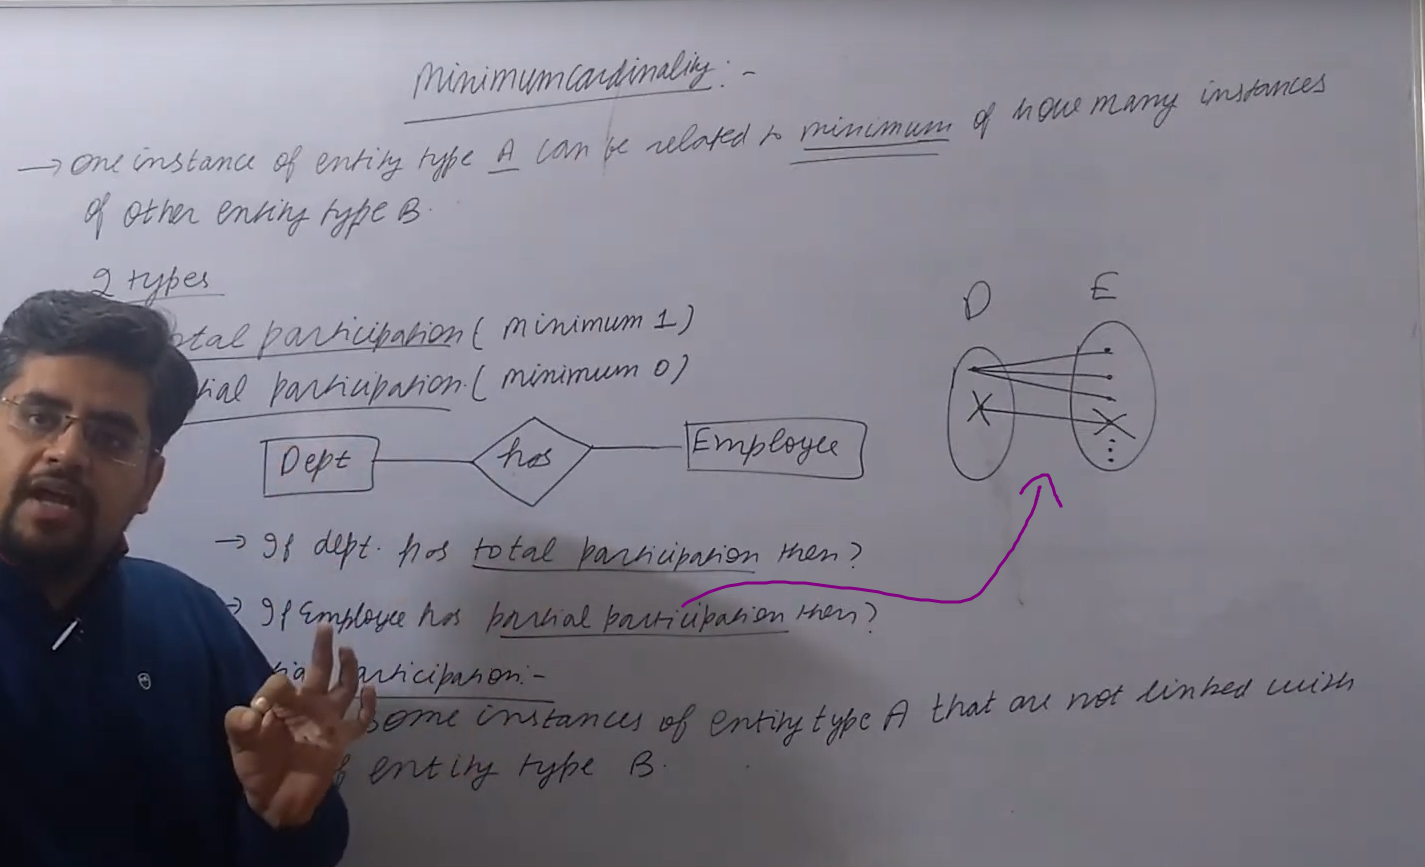 Minimum cardinality :-
→ one instance of entity type A can be related to minimum of how many instances
of other entity type B.
2 types
total participation ( minimum 1 )
tial participation ( minimum 0 )
D E
Dept has Employee
→ If dept. has total participation then?
→ If Employee has partial participation then?
participation:-
some instances of entity type A that are not linked with
entity type B.